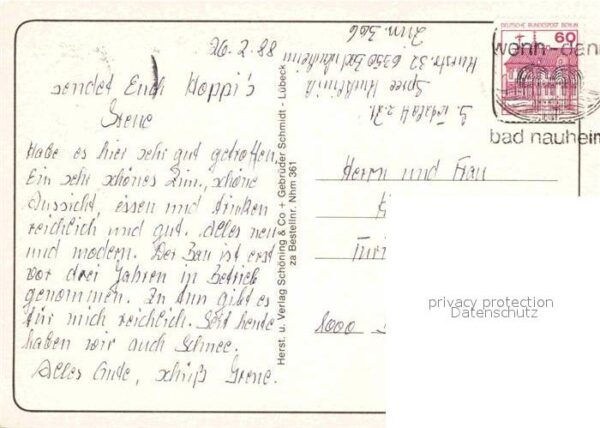 26.2.88
sendet Euch Hoppi's
Irene
Habe es hier sehr gut getroffen.
Ein sehr schönes Zim., schöne
Aussicht, essen und trinken
reichlich und gut. Alles neu
und modern. Der Bau ist erst
vor drei Jahren in Betrieb
genommen. Zu tun gibt es
für mich reichlich. Seit heute
haben wir auch Schnee.
Alles Gute, Irene.
Herst. u. Verlag Schöning & Co + Gebrüder Schmidt - Lübeck
za Bestellnr. Nhm 361
Zim. 306
Kurstr. 32 6350 Bad Nauheim
z. Zt.
DEUTSCHE BUNDESPOST BERLIN
60
wenn - dann
bad nauheim
Herrn und Frau
1000
privacy protection
Datenschutz